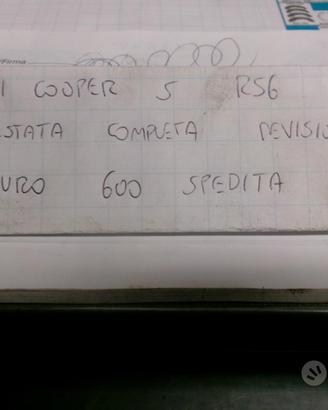 Firma
I COOPER S R56
STATA COMPLETA REVISIO
URO 600 SPEDITA